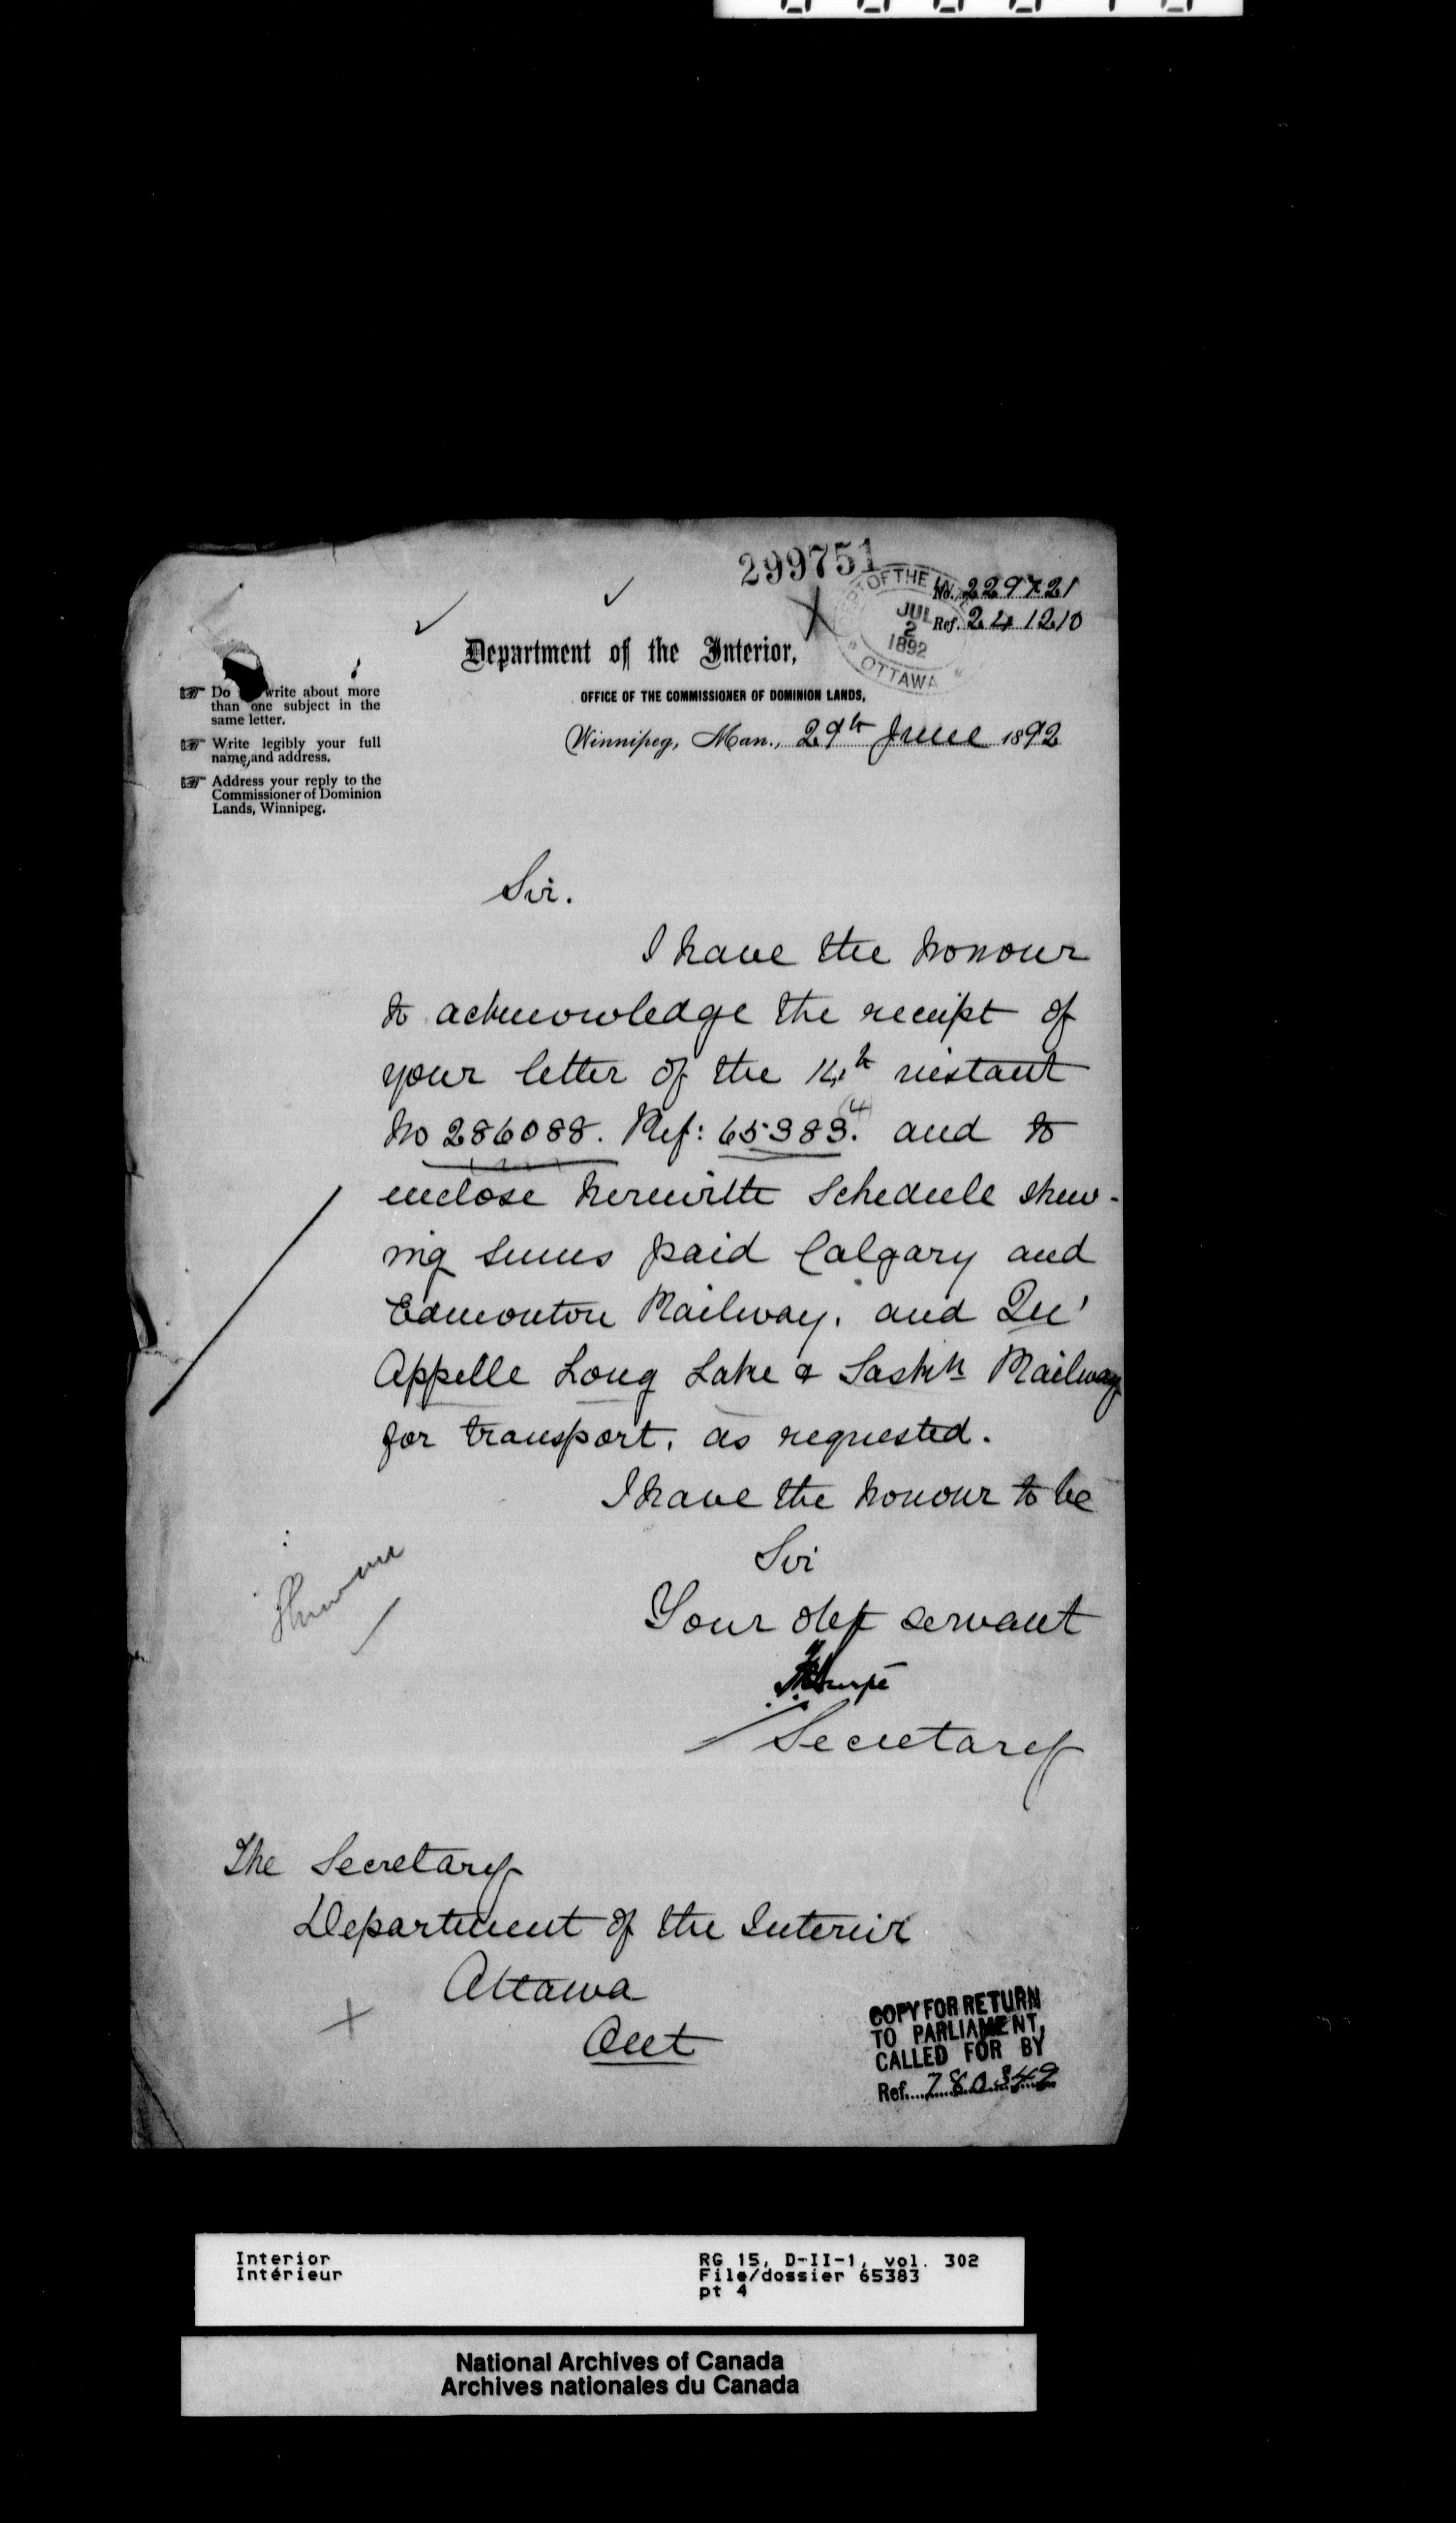 299751
DEPT OF THE
JUL
2
1892
OTTAWA
No. 229721
Ref. 241210
Department of the Interior,
OFFICE OF THE COMMISSIONER OF DOMINION LANDS,
Winnipeg, Man., 29th June 1892
Do write about more
than one subject in the
same letter.
Write legibly your full
name, and address.
Address your reply to the
Commissioner of Dominion
Lands, Winnipeg.
Sir.
I have the honour
to acknowledge the receipt of
your letter of the 14th instant
No 286088. Ref: 65383. (4) and to
enclose herewith Schedule shew-
ing sums paid Calgary and
Edmonton Railway, and Qu'
Appelle Long Lake & Saskn Railway
for transport, as requested.
I have the honour to be
Sir
Your obt servant
Secretary
The Secretary
Department of the Interior
Ottawa
Ont
COPY FOR RETURN
TO PARLIAMENT,
CALLED FOR BY
Ref. 780342
Interior
Intérieur
RG 15, D-II-1, vol. 302
File/dossier 65383
pt 4
National Archives of Canada
Archives nationales du Canada